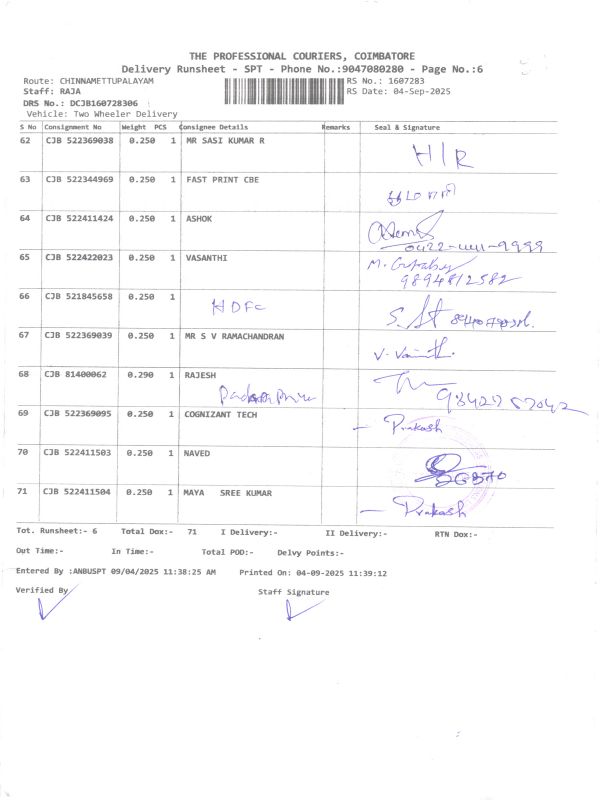 THE PROFESSIONAL COURIERS, COIMBATORE
Delivery Runsheet - SPT - Phone No.:9047080280 - Page No.:6
Route: CHINNAMETTUPALAYAM RS No.: 1607283
Staff: RAJA RS Date: 04-Sep-2025
DRS No.: DCJB160728306
Vehicle: Two Wheeler Delivery
S No Consignment No Weight PCS Consignee Details Remarks Seal & Signature
62 CJB 522369038 0.250 1 MR SASI KUMAR R
H/R
63 CJB 522344969 0.250 1 FAST PRINT CBE
64 CJB 522411424 0.250 1 ASHOK
65 CJB 522422023 0.250 1 VASANTHI
9894812582
66 CJB 521845658 0.250 1
HDFC
67 CJB 522369039 0.250 1 MR S V RAMACHANDRAN
68 CJB 81400062 0.290 1 RAJESH
69 CJB 522369095 0.250 1 COGNIZANT TECH
Prakash
70 CJB 522411503 0.250 1 NAVED
71 CJB 522411504 0.250 1 MAYA SREE KUMAR
Prakash
Tot. Runsheet:- 6 Total Dox:- 71 I Delivery:- II Delivery:- RTN Dox:-
Out Time:- In Time:- Total POD:- Delvy Points:-
Entered By :ANBUSPT 09/04/2025 11:38:25 AM Printed On: 04-09-2025 11:39:12
Verified By Staff Signature